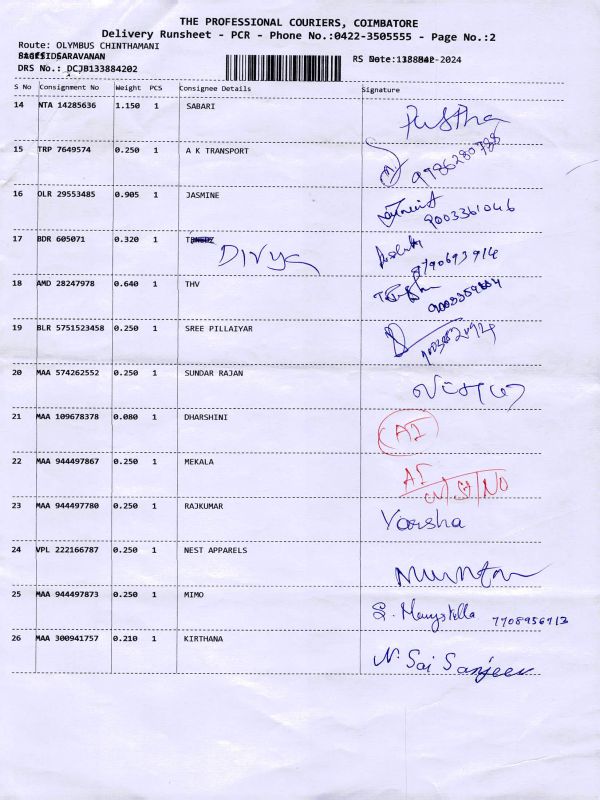 THE PROFESSIONAL COURIERS, COIMBATORE
Delivery Runsheet - PCR - Phone No.:0422-3505555 - Page No.:2
Route: OLYMBUS CHINTHAMANI
SARAVANAN
RS Date: -2024
DRS No.: DCJB133884202
S No Consignment No Weight PCS Consignee Details Signature
14 NTA 14285636 1.150 1 SABARI
15 TRP 7649574 0.250 1 A K TRANSPORT
16 OLR 29553485 0.905 1 JASMINE 9003361046
17 BDR 605071 0.320 1 Divya
18 AMD 28247978 0.640 1 THV
19 BLR 5751523458 0.250 1 SREE PILLAIYAR
20 MAA 574262552 0.250 1 SUNDAR RAJAN
21 MAA 109678378 0.080 1 DHARSHINI AI
22 MAA 944497867 0.250 1 MEKALA AI
23 MAA 944497780 0.250 1 RAJKUMAR Varsha
24 VPL 222166787 0.250 1 NEST APPARELS
25 MAA 944497873 0.250 1 MIMO S. Marystella 7708956913
26 MAA 300941757 0.210 1 KIRTHANA N. Sai Sanjeev